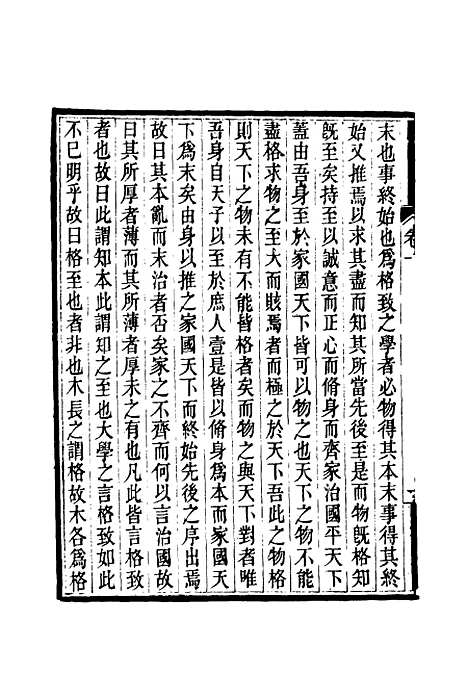 末也事終始也爲格致之學者必物得其本末事得其終
始又推焉以求其盡而知其所當先後至是而物旣格知
旣至矣持至以誠意而正心而脩身而齊家治國平天下
蓋由吾身至於家國天下皆可以物之也天下之物不能
盡格求物之至大而賅焉者而極之於天下吾此之物格
則天下之物未有不能皆格者矣而物之與天下對者唯
吾身自天子以至於庶人壹是皆以脩身爲本而家國天
下爲末矣由身以推之家國天下而終始先後之序出焉
故曰其本亂而末治者否矣家之不齊而何以言治國故
曰其所厚者薄而其所薄者厚未之有也凡此皆言格致
者也故曰此謂知本此謂知之至也大學之言格致如此
不已明乎故曰格至也者非也木長之謂格故木各爲格
卷一